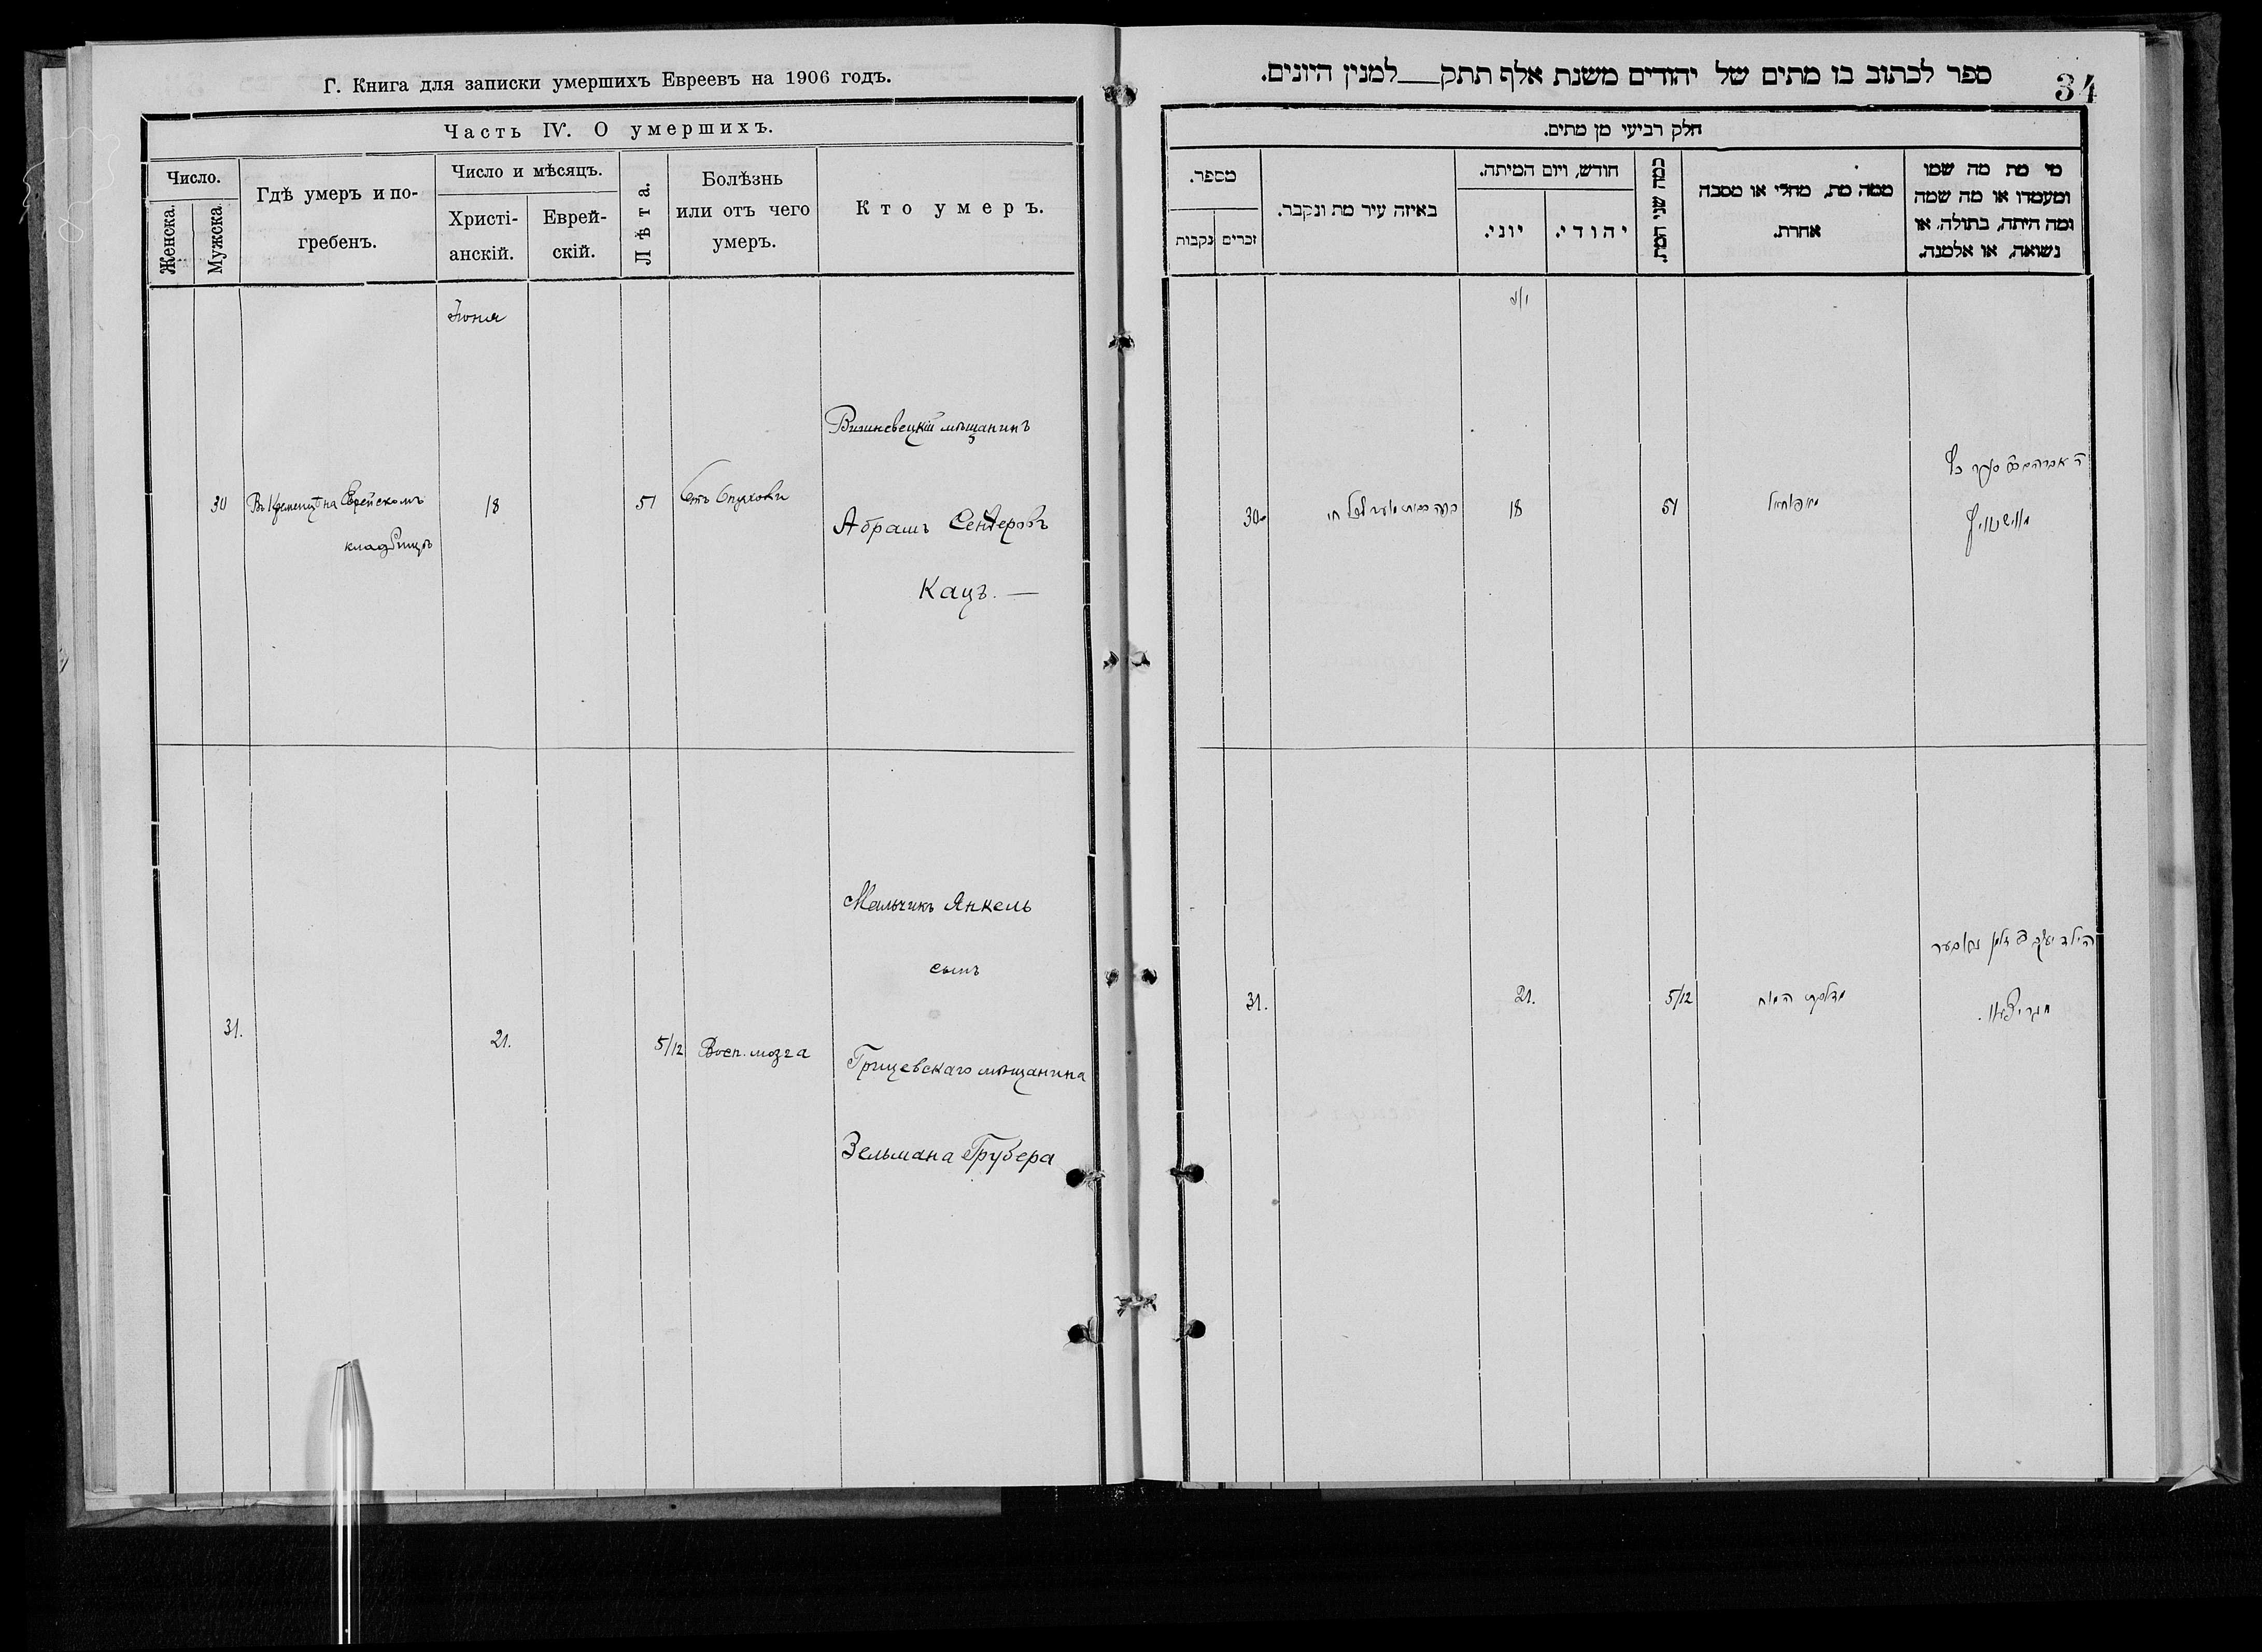 Г. Книга для записки умершихъ Евреевъ на 1906 годъ.
Часть IV. О умершихъ.
Число.
Женска.
Мужска.
Гдѣ умеръ и по-
гребенъ.
Число и мѣсяцъ.
Христі-
анскій.
Еврей-
скій.
Лѣта.
Болѣзнь
или отъ чего
умеръ.
Кто умеръ.
Іюня
30
Въ Кременцѣ на Еврейскомъ
кладбищѣ
18
51
Отъ Опухоли
Вишневецкій мѣщанинъ
Абрамъ Сендеровъ
Кацъ. —
31.
21.
5/12
Восп. мозга
Мальчикъ Янкель
сынъ
Грицевскаго мѣщанина
Зельмана Грубера
34
ספר לכתוב בו מתים של יהודים משנת אלף תתק__למנין היונים.
חלק רביעי מן מתים.
מספר.
נקבות
זכרים
באיזה עיר מת ונקבר.
חודש, ויום המיתה.
יוני.
יהודי.
כמה שני המת.
ממה מת, מחלי או מסבה
אחרת.
מי מת מה שמו
ומעמדו או מה שמה
ומה היתה, בתולה, או
נשואה, או אלמנה.
30
18
51
31.
21.
5/12
מדלקת המוח
הילד יעקב